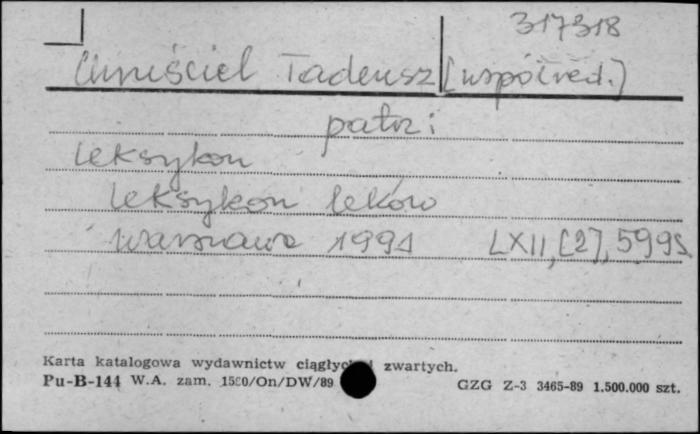 317318
Chruściel Tadeusz [współred.]
patrz:
Leksykon
Leksykon leków
Warszawa 1991 LXII, [2], 599 s.
Karta katalogowa wydawnictw ciągłych i zwartych.
Pu-B-144 W.A. zam. 1550/On/DW/89 GZG Z-3 3465-89 1.500.000 szt.